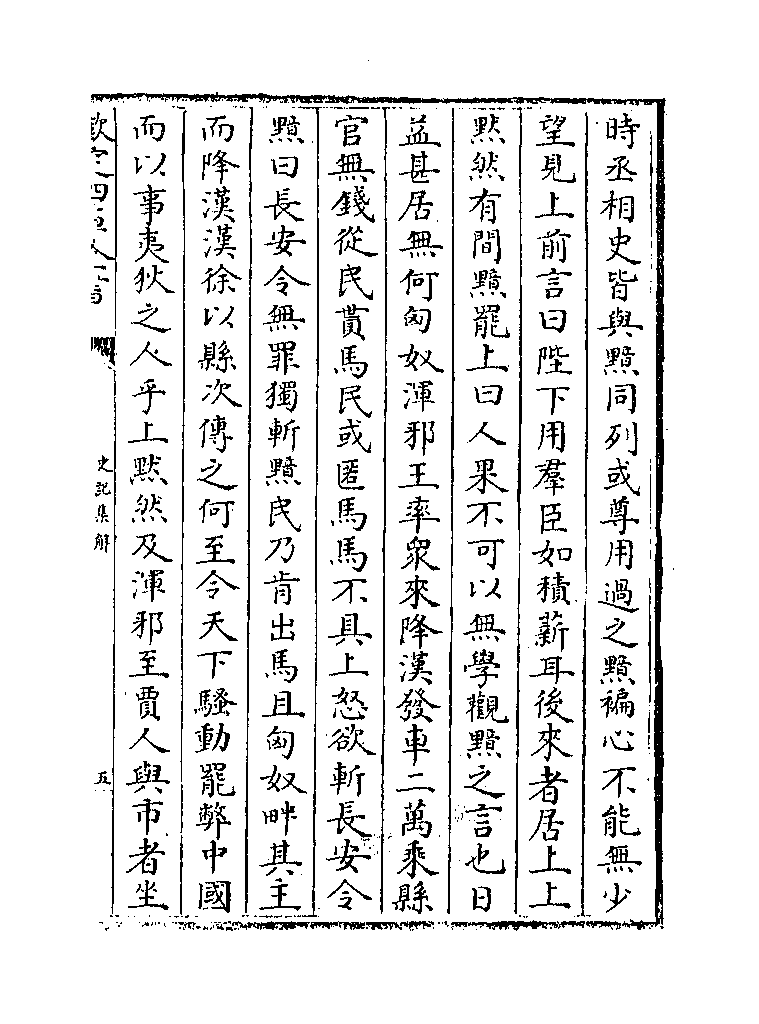 時丞相史皆與黯同列或尊用過之黯褊心不能無少
望見上前言曰陛下用羣臣如積薪耳後來者居上上
黙然有間黯罷上曰人果不可以無學觀黯之言也日
益甚居無何匈奴渾邪王率衆來降漢發車二萬乘縣
官無錢從民貰馬民或匿馬馬不具上怒欲斬長安令
黯曰長安令無罪獨斬黯民乃肯出馬且匈奴畔其主
而降漢漢徐以縣次傳之何至令天下騷動罷弊中國
而以事夷狄之人乎上黙然及渾邪至賈人與市者坐
欽定四庫全書
史記集解
五